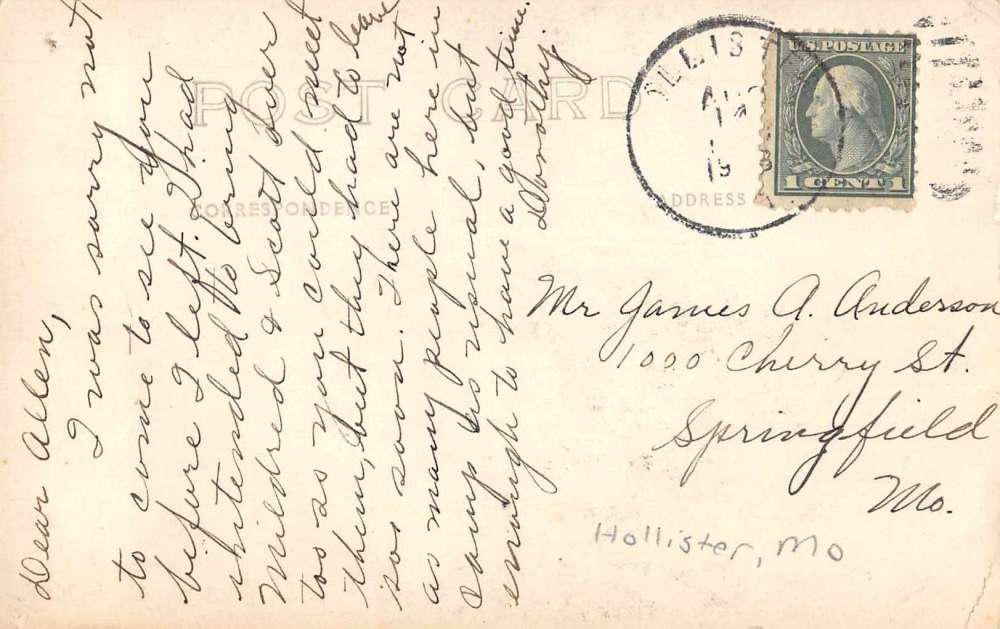 POST CARD
CORRESPONDENCE
ADDRESS
Dear Allen,
I was sorry not
to come to see you
before I left. I had
intended to bring
Mildred & Scott over
too so you could meet
them, but they had to leave
so soon. There are not
as many people here in
camp as usual, but
enough to have a good time.
Dorothy.
OLLIST
AUG
U.S. POSTAGE
1 CENT 1
Mr James A. Anderson
1000 Cherry St.
Springfield
Mo.
Hollister, Mo